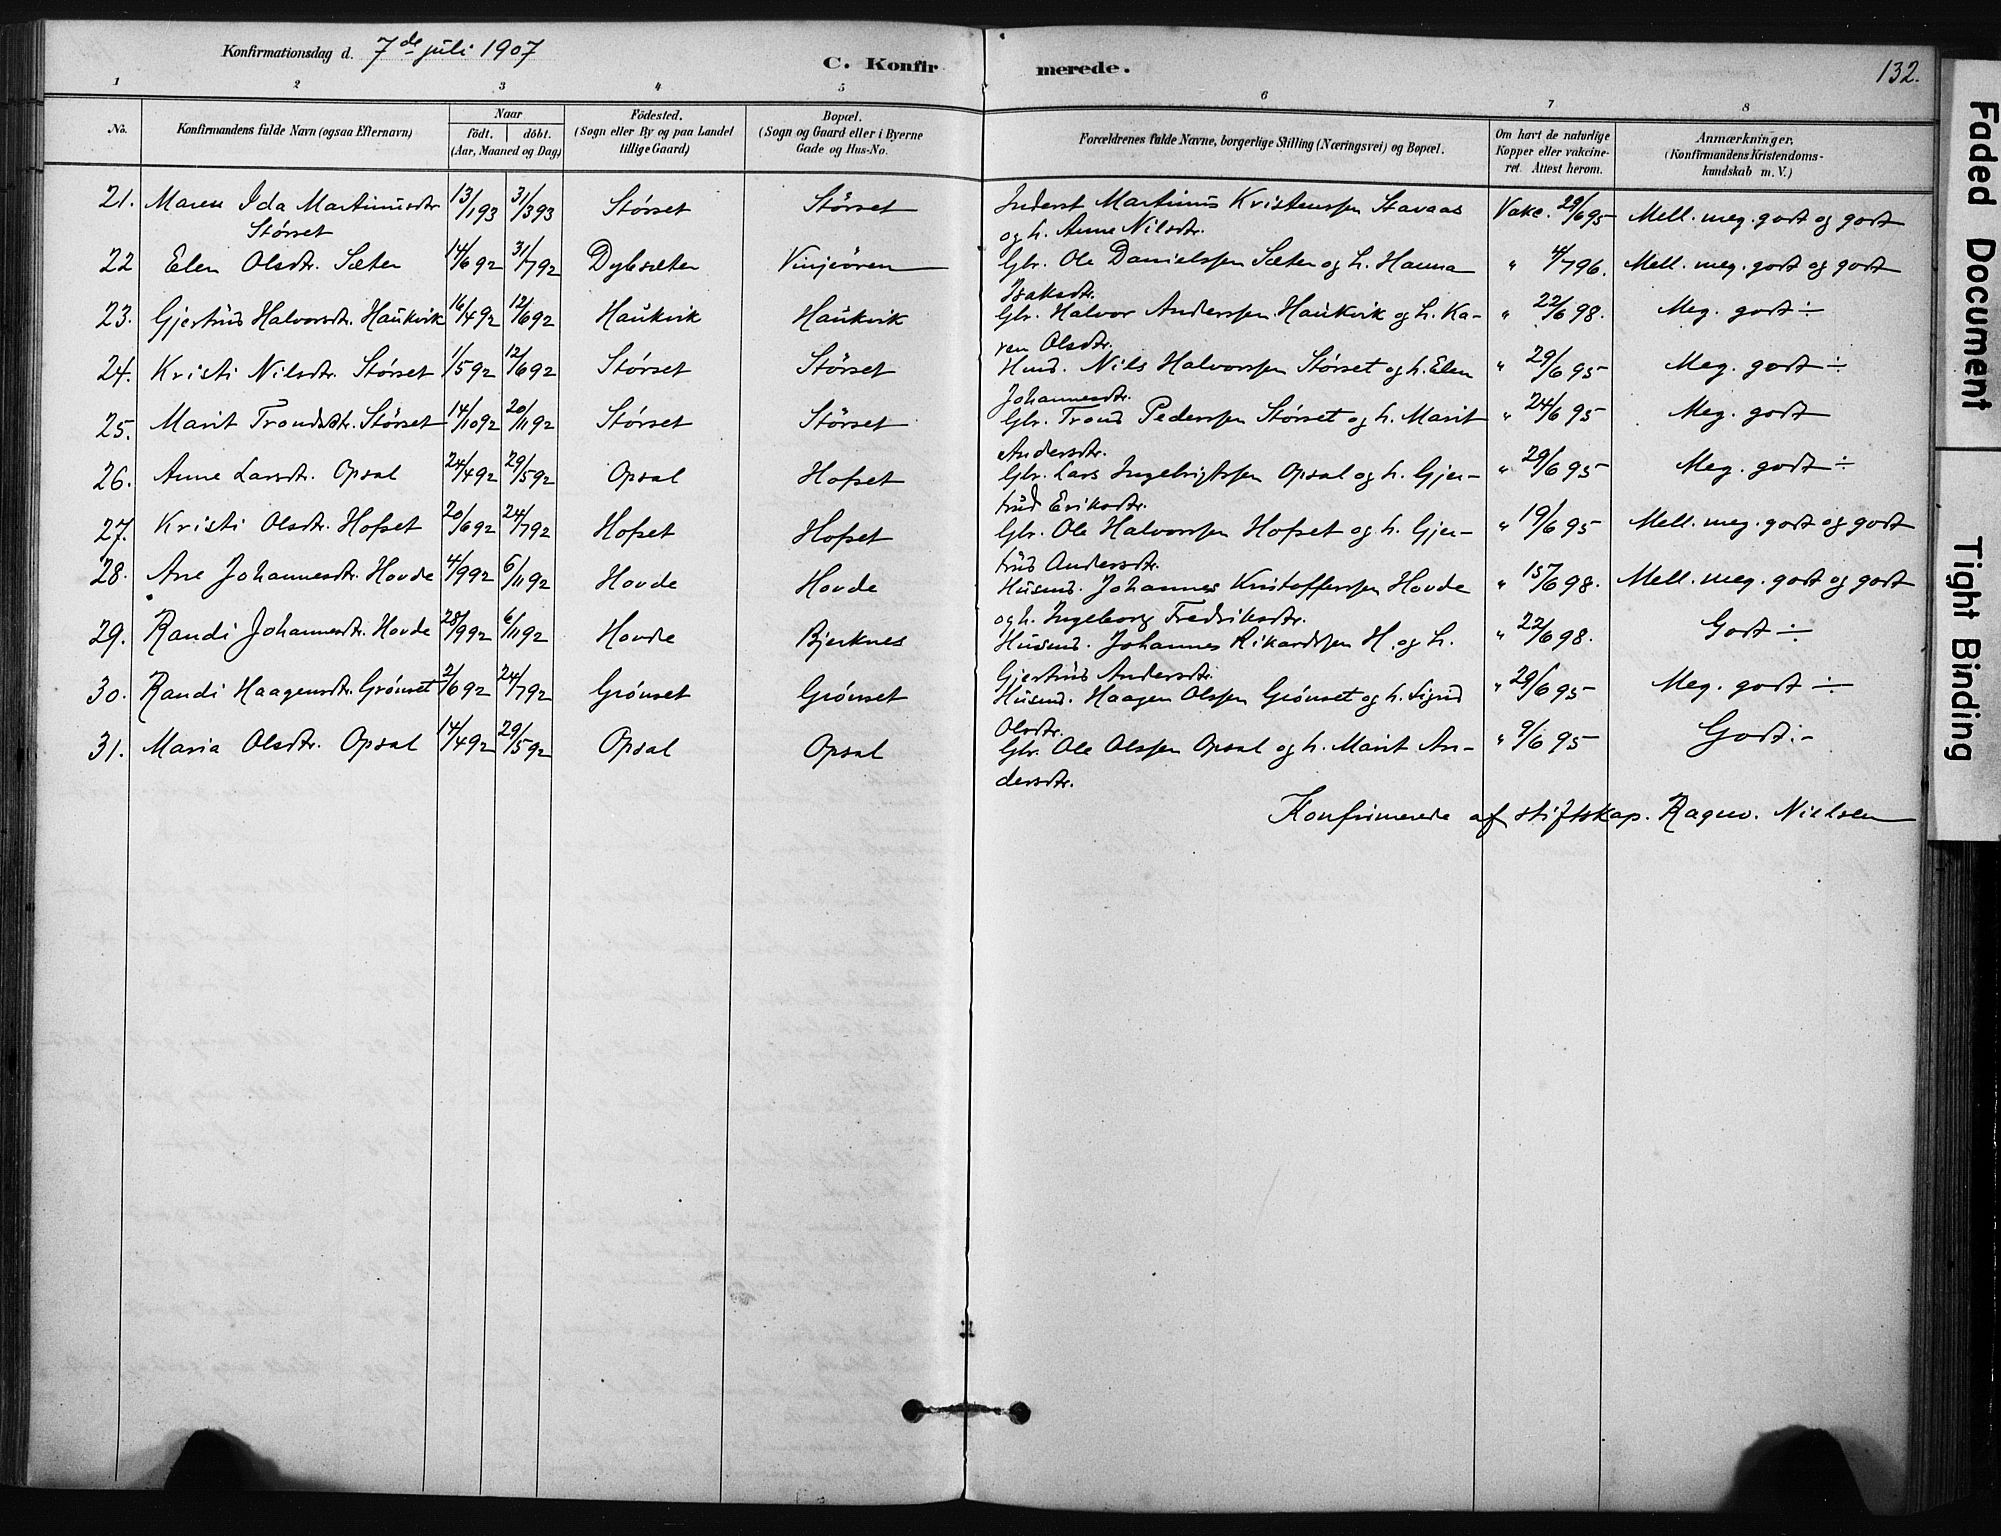 Konfirmationsdag d. 7de juli 1907
C. Konfirmerede.
132.
1 2 3 4 5 6 7 8
No. Konfirmandens fulde Navn (ogsaa Efternavn) Naar födt. döbt. (Aar, Maaned og Dag) Födested. (Sogn eller By og paa Landet tillige Gaard) Bopæl. (Sogn og Gaard eller i Byerne Gade og Hus-No. Forældrenes fulde Navne, borgerlige Stilling (Næringsvei) og Bopæl. Om havt de naturlige Kopper eller vakcineret. Attest herom. Anmærkninger. (Konfirmandens Kristendomskundskab m. V.)
21. Maren Ida Martinusdtr 13/1 93 31/3 93 Störset Störset Inderst Martinus Kristenssen Stavaas Vakc. 29/6 95 Mell. meg. godt og godt
Störset og h. Anne Nilsdtr.
22 Elen Olsdtr. Sæter 14/6 92 31/7 92 Dybsæter Vinjeören Gbr. Ole Danielssen Sæter og h. Hanna " 4/7 96. Mell. meg. godt og godt
Isaksdtr.
23. Gjertrud Halvorsdtr. Haukvik 16/4 92 12/6 92 Haukvik Haukvik Gbr. Halvor Anderssen Haukvik og h. Ka- " 22/6 98. Meg. godt ÷
ren Olsdtr.
24. Kristi Nilsdtr. Störset 1/5 92 12/6 92 Störset Störset Husd. Nils Halvorssen Störset og h. Elen " 29/6 95 Meg. godt ÷
Johannesdtr.
25. Marit Trondsdtr. Störset 14/10 92 20/11 92 Störset Störset Gbr. Trond Pederssen Störset og h. Marit " 24/6 95 Meg. godt
Andersdtr.
26. Anne Larsdtr. Opsal 24/4 92 29/5 92 Opsal Hofset Gbr. Lars Ingebrigtssen Opsal og h. Gjer- " 29/6 95 Meg. godt ÷
trud Eriksdtr.
27. Kristi Olsdtr. Hofset 20/6 92 24/7 92 Hofset Hofset Gbr. Ole Halvorssen Hofset og h. Gjer- " 19/6 95 Mell. meg. godt og godt
trud Andersdtr.
28. Ane Johannesdtr. Hovde 4/9 92 6/11 92 Hovde Hovde Husmd. Johannes Kristofferssen Hovde " 15/6 98. Mell. meg. godt og godt
og h. Ingeborg Fredriksdtr.
29. Randi Johannesdtr. Hovde 28/9 92 6/11 92 Hovde Bjerknes Husmd. Johannes Rikardssen H. og h. " 22/6 98. Godt ÷
Gjertrud Andersdtr.
30. Randi Haagensdtr. Grönset 2/6 92 24/7 92 Grönset Grönset Husmd. Haagen Olssen Grönset og h. Sigrid " 29/6 95 Meg. godt ÷
Olsdtr.
31. Maria Olsdtr. Opsal 14/4 92 29/5 92 Opsal Opsal Gbr. Ole Olssen Opsal og h. Marit An- " 9/6 95 Godt.-
dersdtr.
Konfirmerede af stiftskap. Ragnv. Nielsen
Faded Document
Tight Binding